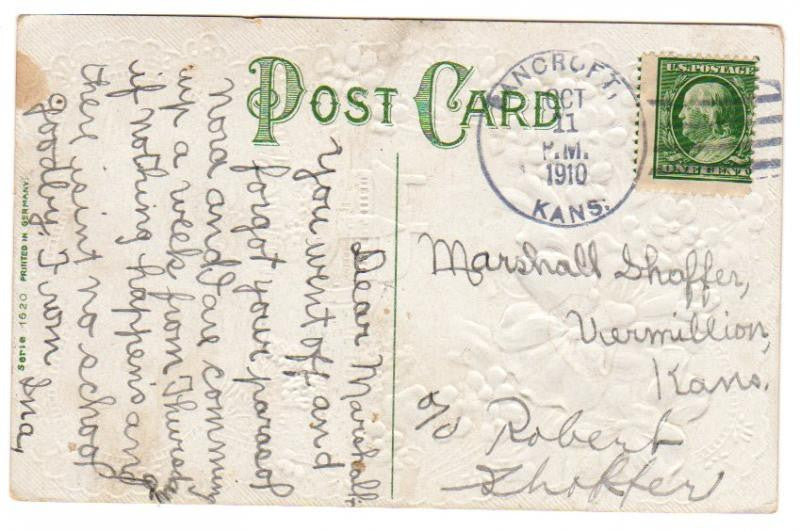 POST CARD
BANCROFT,
OCT
11
P.M.
1910
KANS.
U.S. POSTAGE
ONE CENT
Dear Marshall:
You went off and
forgot your parasol
nora and I are comming
up a week from Thursday
if nothing happens and
there isint no school
goodby From Ina,
Marshall Shoffer,
Vermillion,
Kans.
c/o Robert
Shoffer
Serie 1620 PRINTED IN GERMANY.